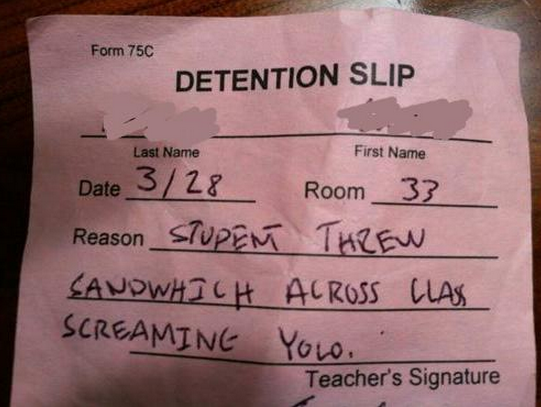 Form 75C
DETENTION SLIP
Last Name First Name
Date 3/28 Room 33
Reason STUDENT THREW
SANDWHICH ACROSS CLASS
SCREAMING YOLO.
Teacher's Signature